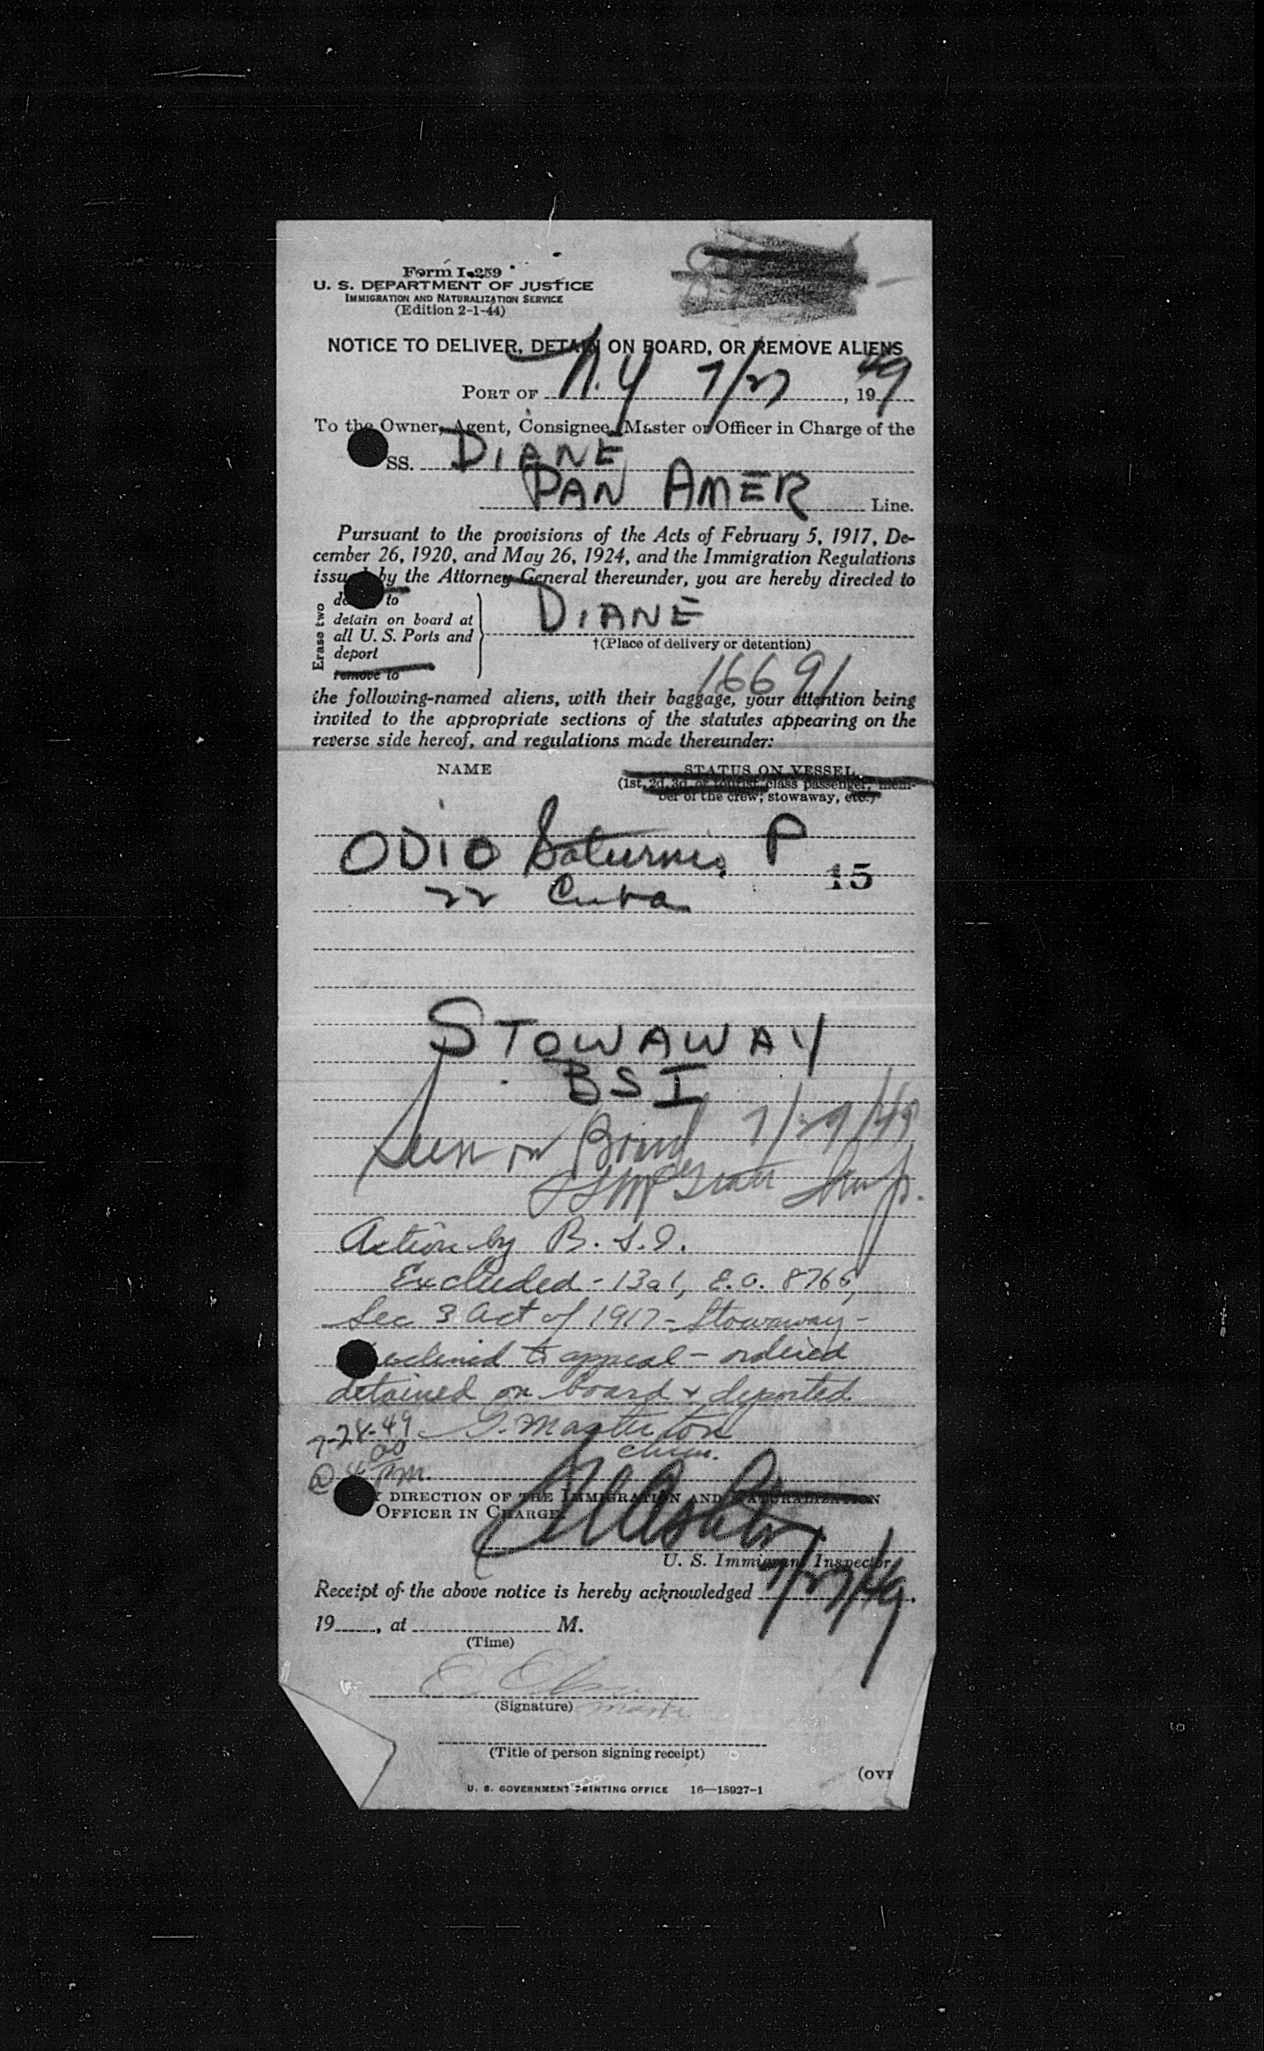 Form I-259
U. S. DEPARTMENT OF JUSTICE
IMMIGRATION AND NATURALIZATION SERVICE
(Edition 2-1-44)
NOTICE TO DELIVER, DETAIN ON BOARD, OR REMOVE ALIENS
PORT OF N.Y 7/27, 1949
To the Owner, Agent, Consignee, Master or Officer in Charge of the
SS. DIANE
PAN AMER Line.
Pursuant to the provisions of the Acts of February 5, 1917, De-
cember 26, 1920, and May 26, 1924, and the Immigration Regulations
issued by the Attorney General thereunder, you are hereby directed to
Erase two
to
detain on board at
all U. S. Ports and
deport
remove to
DIANE
†(Place of delivery or detention)
16691
the following-named aliens, with their baggage, your attention being
invited to the appropriate sections of the statutes appearing on the
reverse side hereof, and regulations made thereunder:
NAME STATUS ON VESSEL
(1st, 2d, 3d, or tourist class passenger, mem-
ber of the crew, stowaway, etc.)
ODIO Saturnio P
15
22 Cuba
STOWAWAY
BSI
Seen on Board 7/29/49
Action by B. S. I.
Excluded - 13a1, E.O. 8766,
Sec 3 Act of 1917 - Stowaway -
declined to appeal - ordered
detained on board & deported
7-28-49 G. Masterton
@ 4 00 PM chm.
DIRECTION OF THE IMMIGRATION AND NATURALIZATION
OFFICER IN CHARGE:
U. S. Immigrant Inspector
Receipt of the above notice is hereby acknowledged 7/27/49,
19___, at ___ M.
(Time)
(Signature)
(Title of person signing receipt)
(OVE
U. S. GOVERNMENT PRINTING OFFICE 16—18927-1